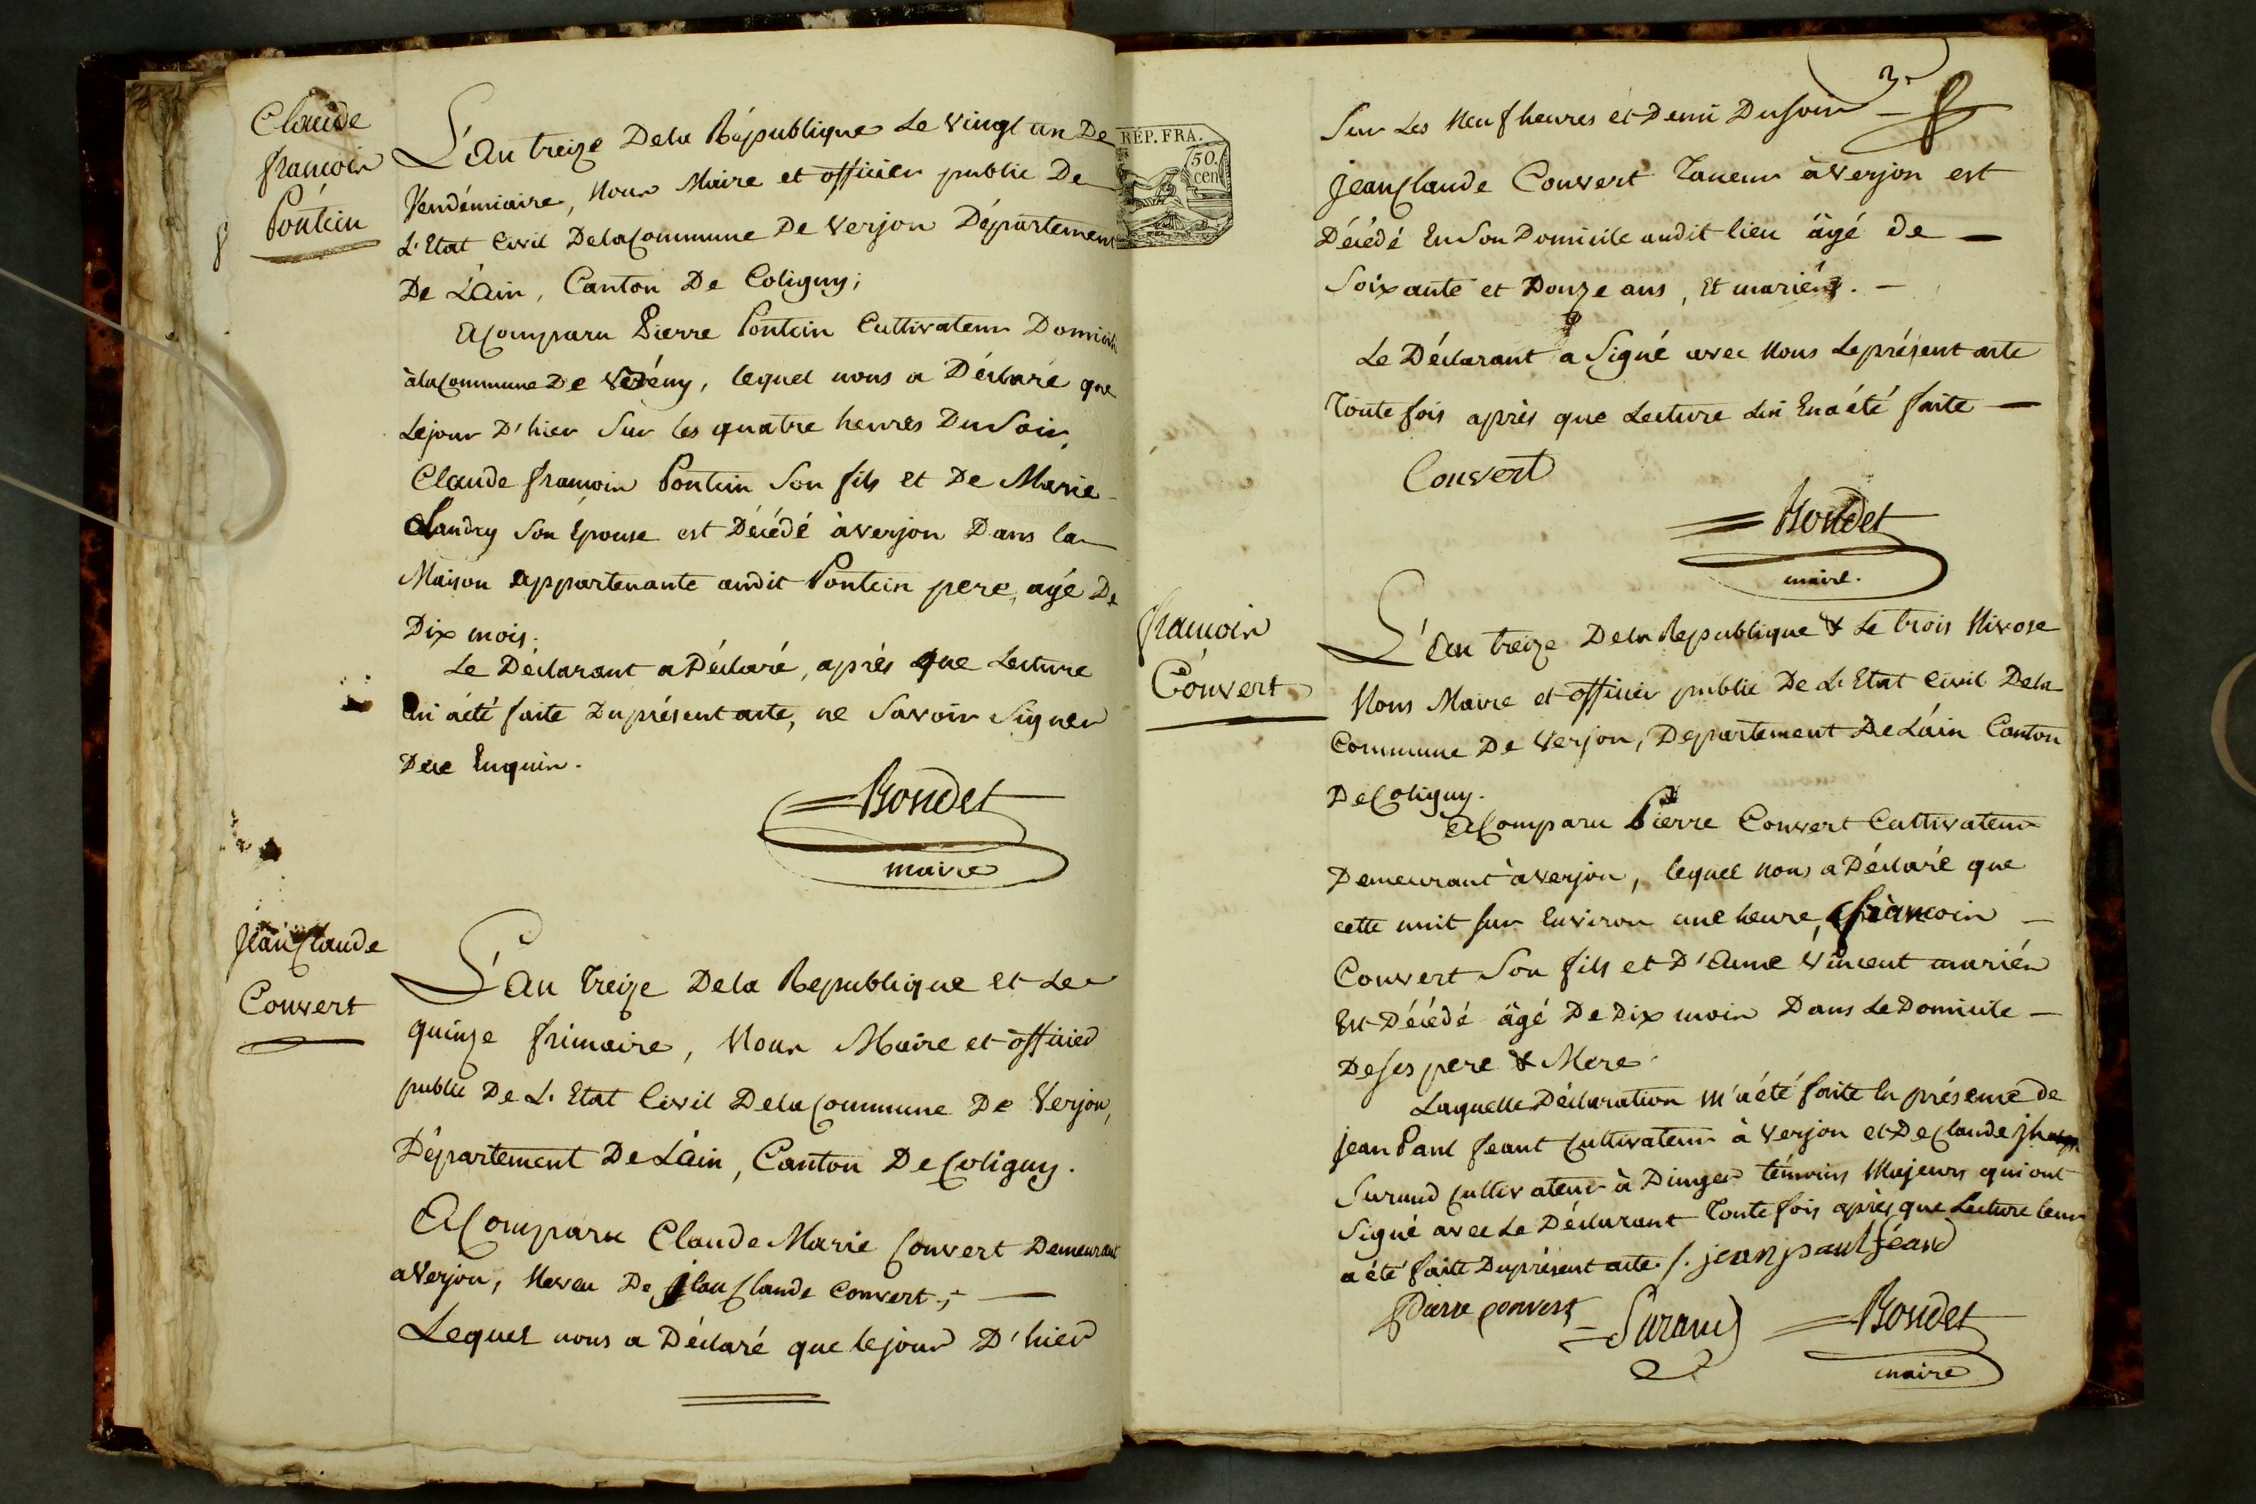 Claude
françois
Pontein
L'an treize De la République Le vingt un De
Vendémiaire, Nous Maire et officier public De
L'Etat Civil De la Commune De Verjon Département
De L'ain, Canton De Coligny;
A Comparu Pierre Pontein Cultivateur Domicilié
à la Commune De, lequel nous a Déclaré que
Le jour D'hier Sur les quatre heures Du Soir,
Claude françois Pontein Son fils et De Marie
Landry Son Epouse est Décédé à Verjon Dans la
Maison appartenante audit Pontein pere, agé De
Dix mois.
Le Déclarant a Déclaré, après que Lecture
lui a été faite Du présent acte, ne Savoir Signer
De ce Enquis.
Bondet
maire
Jean Claude
Convert
L'an treize De la Republique et Le
quinze frimaire, Nous Maire et officier
public De L'Etat Civil De la Commune De Verjon,
Département De L'ain, Canton De Coligny.
A Comparu Claude Marie Convert Demeurant
a Verjon, Neveu De Jean Claude Convert;
Lequel nous a Déclaré que le jour D'hier
RÉP. FRA.
50.
cen
3
Sur Les Neuf heures et Demi Du soir
Jean Claude Convert Taneur à Verjon est
Décédé En Son Domicile audit lieu âgé de
Soixante et Douze ans, Et mariés.
Le Déclarant a Signé avec Nous Le présent acte
Toute fois après que Lecture Lui En a été faite
Convert
Bondet
maire.
françois
Convert
L'an treize De la Republique & Le trois Nivose
Nous Maire et officier public De L'Etat Civil De la
Commune De Verjon, Departement De L'ain Canton
De Coligny.
A Comparu Pierre Convert Cultivateur
Demeurant à Verjon, lequel nous a Déclaré que
cette nuit sur Environ une heure, françois
Convert Son fils et D'Anne Vincent mariés
Est Décédé âgé De Dix mois Dans Le Domicile
De ses pere & Mere.
Laquelle Déclaration m'a été faite En présence de
Jean Paul feant Cultivateur à Verjon et De Claude
Surand Cultivateur à Dingier témoins Majeurs qui ont
Signé avec Le Déclarant Toute fois après que Lecture leur
a été faite Du présent acte /. jean paul féand
Pierre convert
Surand
Bondet
maire